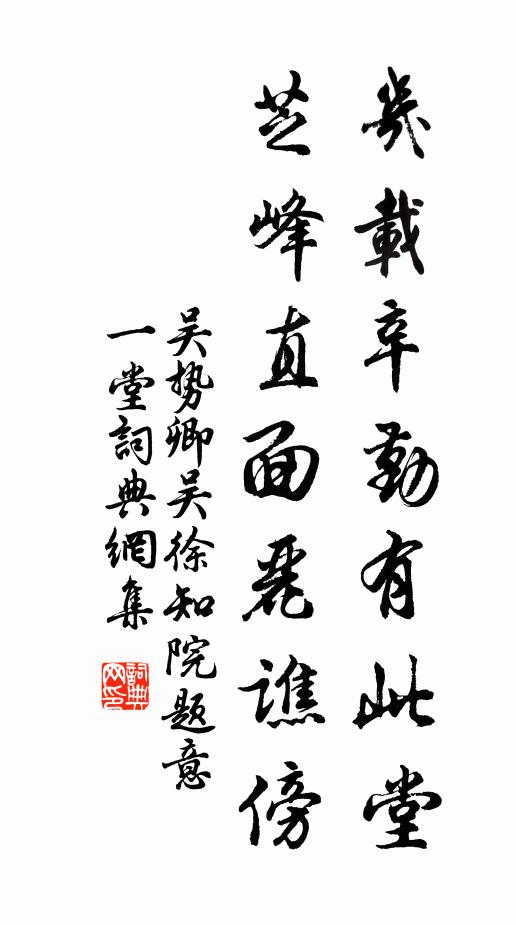 幾載辛勤有此堂
芝峰直面麗譙傍
吳勢卿吴徐知院題意
一堂詞典網集
詞典网印